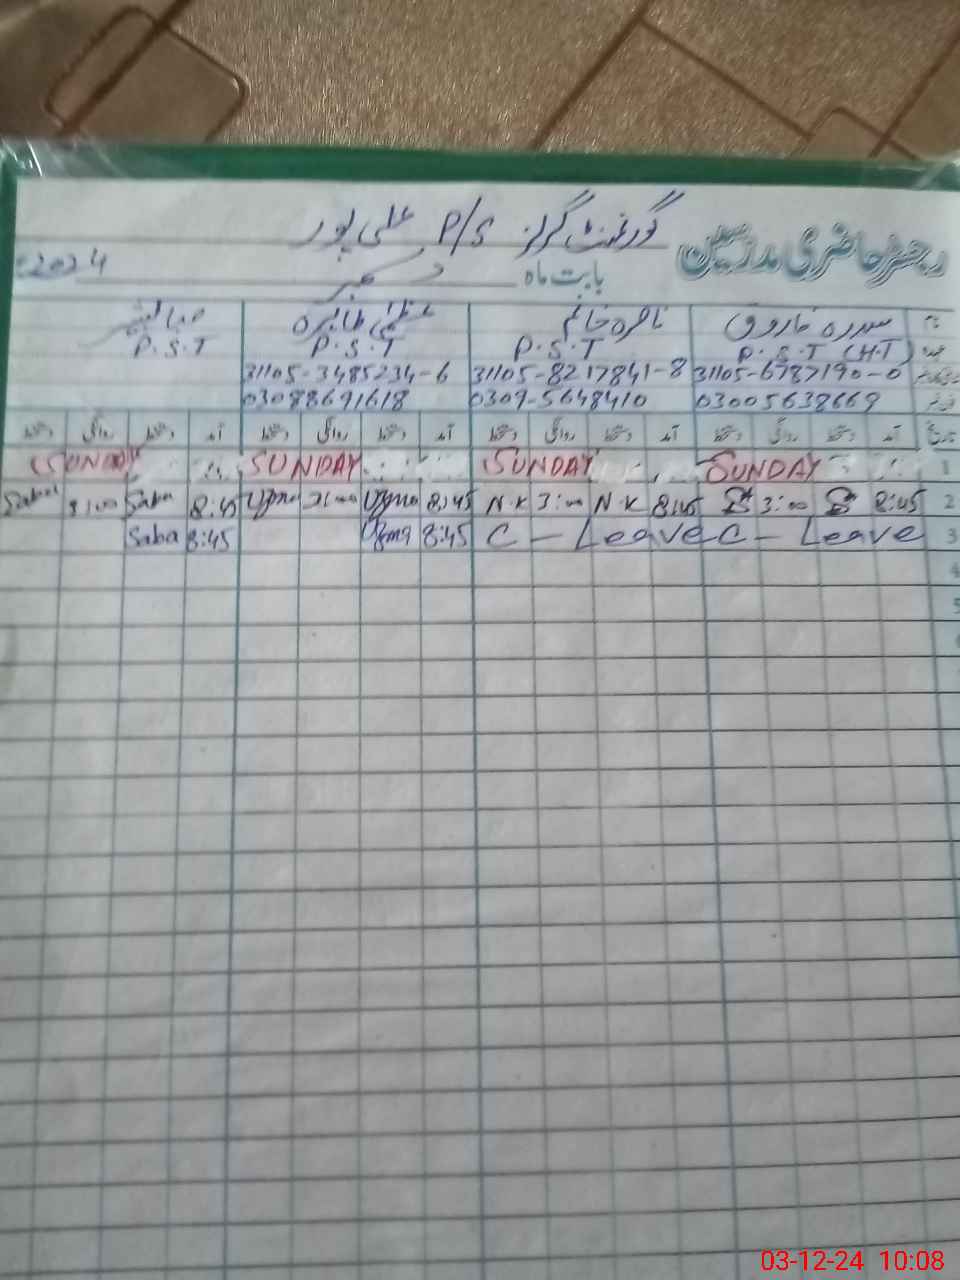 رجسٹر حاضری مدرسین گورنمنٹ گرلز P/S علی پور
بابت ماہ دسمبر 2024
نام سدرہ فاروق ناصرہ خانم عظمیٰ طاہرہ صبا
عہدہ P.S.T (H.T) P.S.T P.S.T P.S.T
31105-6787190-0 31105-8217841-8 31105-3485234-6
03005638669 0309-5648410 03088691618
تاریخ آمد دستخط روانگی دستخط آمد دستخط روانگی دستخط آمد دستخط روانگی دستخط آمد دستخط روانگی دستخط
1 SUNDAY SUNDAY SUNDAY SUNDAY
2 8:45 3:00 8:45 N.K 3:00 N.K 8:45 Uzma 3:00 Uzma 8:45 Saba 3:00 Saba
3 C - Leave C - Leave 8:45 Uzma 8:45 Saba
4
5
03-12-24 10:08